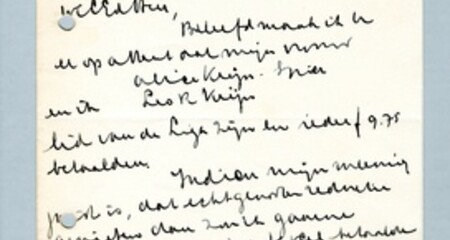 WelEd Heer,
Beleefd maak ik U
er op attent dat mijn vrouw
Alice Krijn - Spier
en ik Leo R Krijn
lid van de Liga zijn en ieder f 9.75
betaalden. Indien mijn meening
juist is, dat echtgenoten reductie
genieten dan zou ik gaarne
betaalde